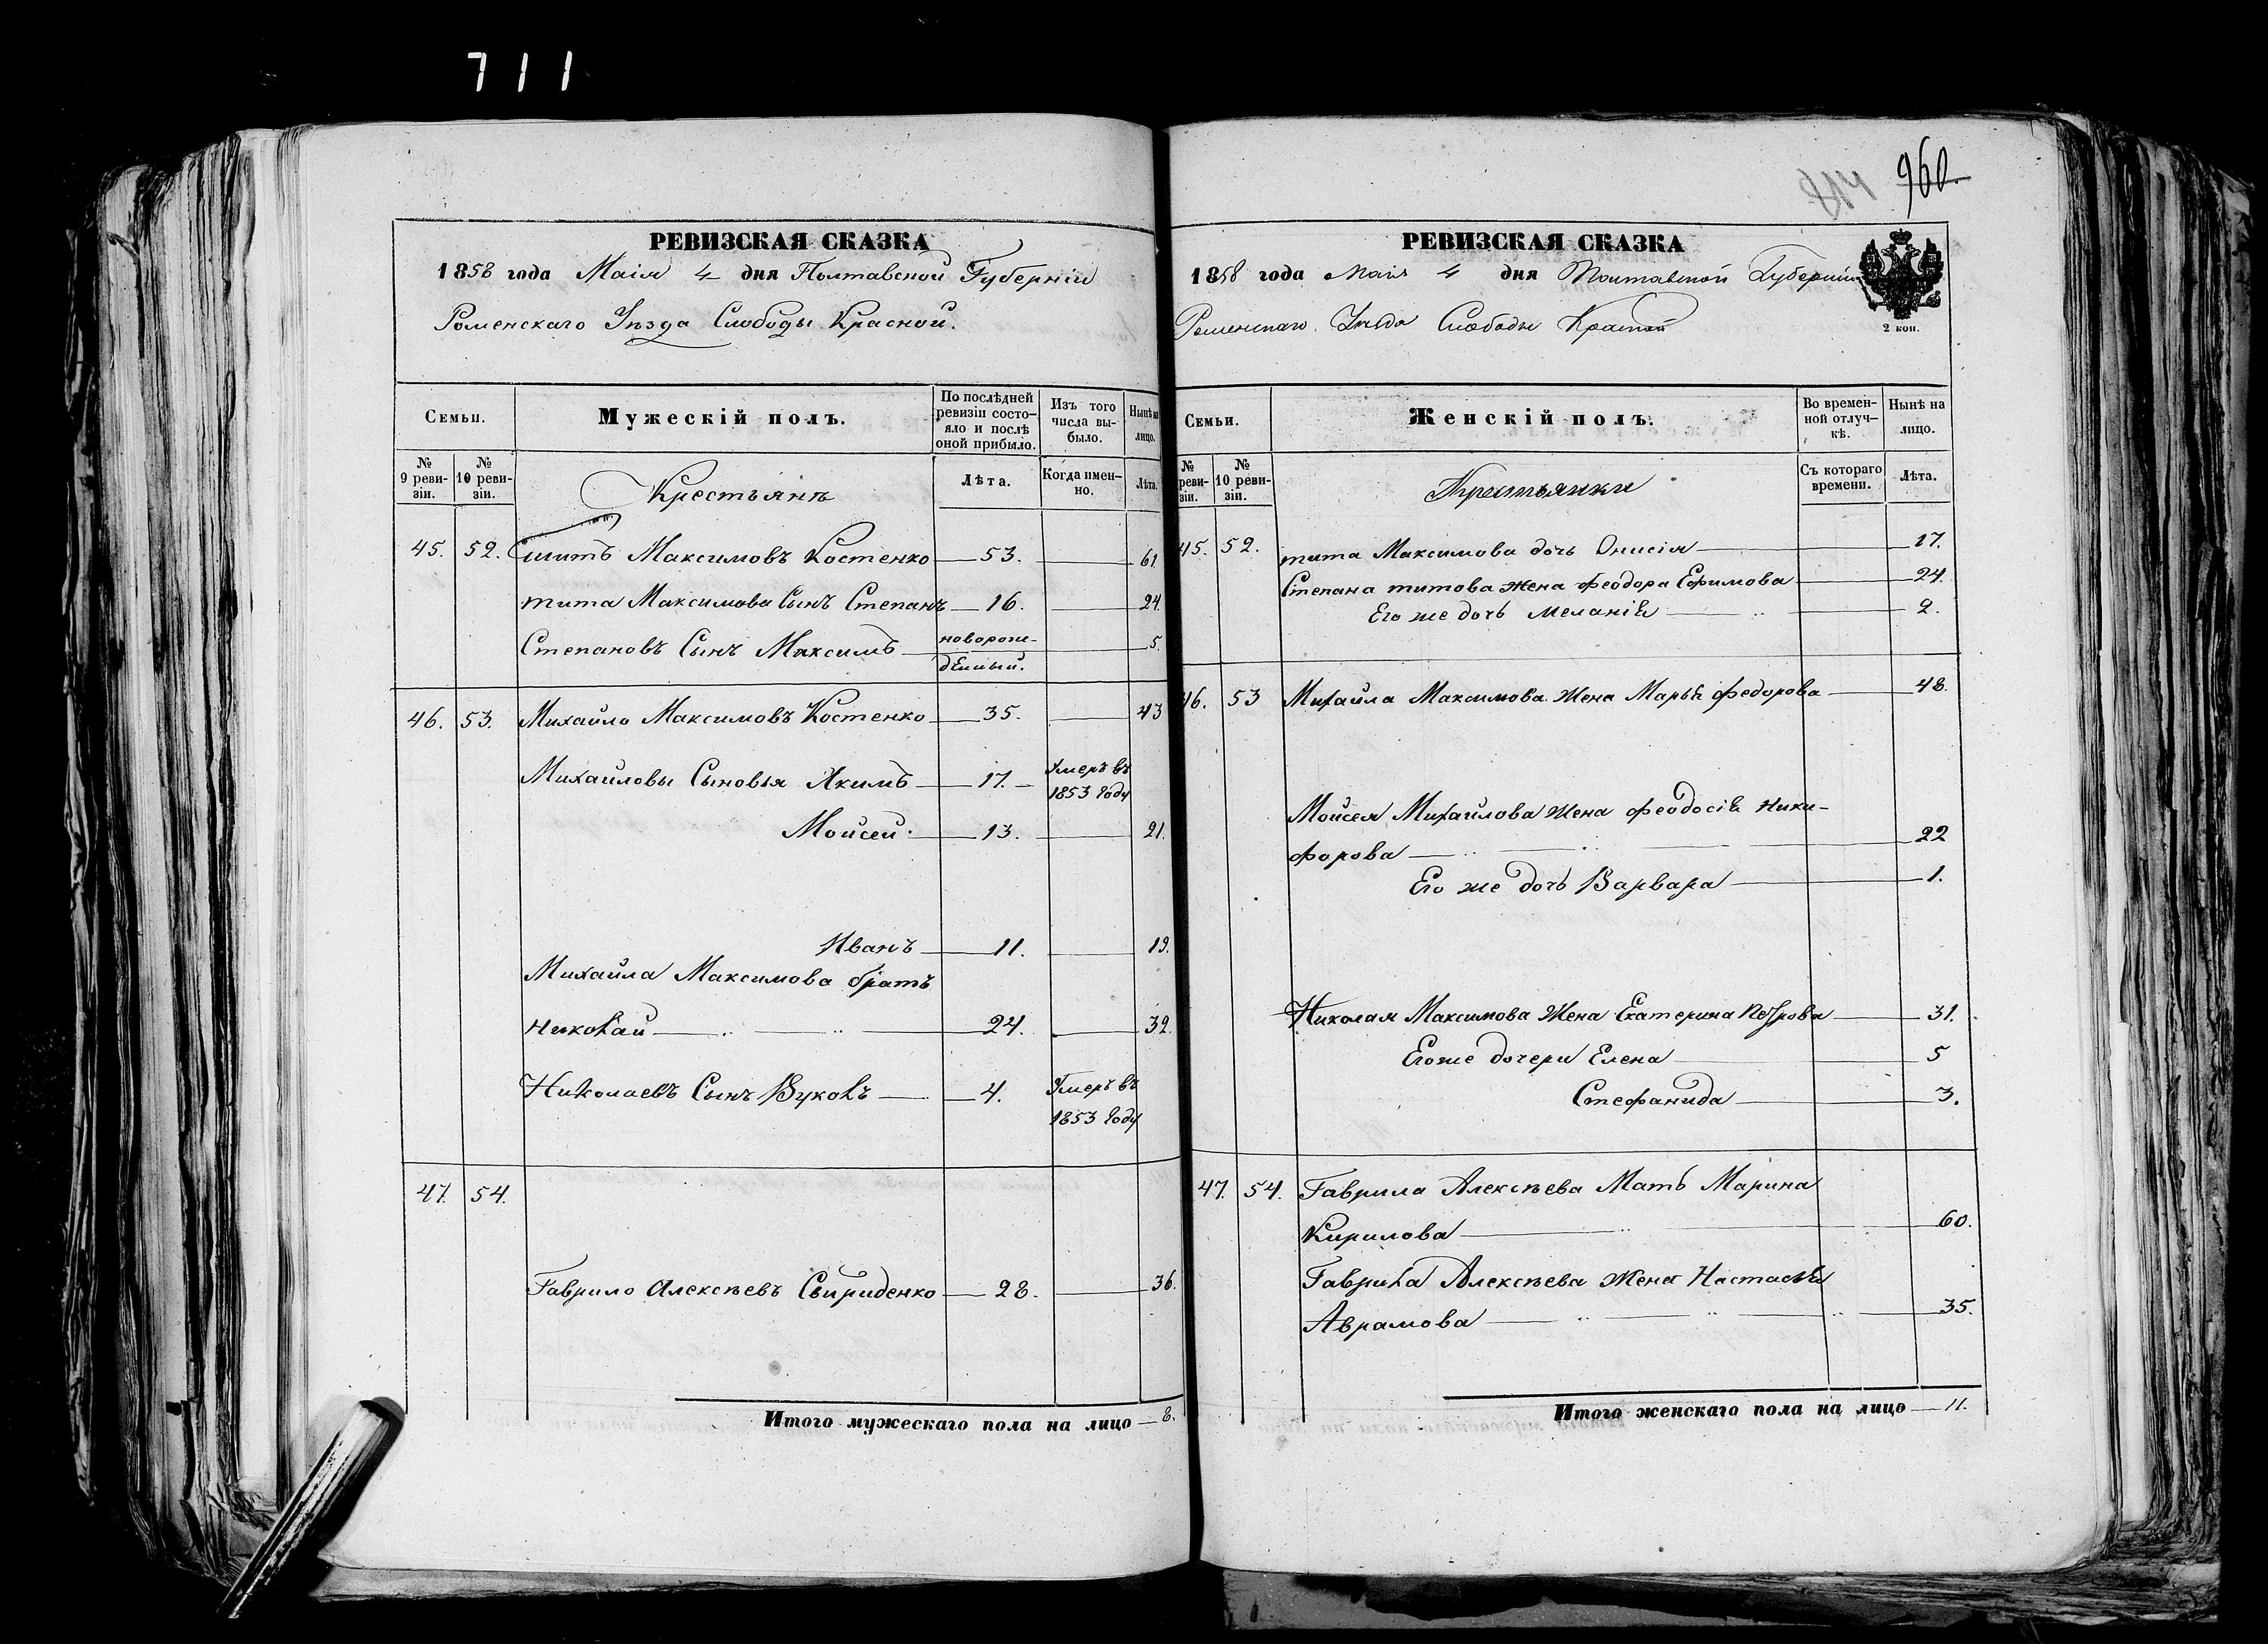 711
960.
РЕВИЗСКАЯ СКАЗКА
1858 года Маія 4 дня Полтавской Губерніи
Роменскаго Уѣзда Слободы Красной.
Семьи.
Мужескій полъ.
По послѣдней ревизіи состо-
яло и послѣ оной прибыло.
Изъ того числа вы-
было.
Нынѣ на лицо.
№ 9 реви-
зіи.
№ 10 реви-
зіи.
Крестьянѣ
Лѣта.
Когда имен-
но.
Лѣта.
45. 52. Титъ Максимовъ Костенко 53. 61
тита Максимова Сынъ Степанъ 16. 24.
Степановъ Сынъ Максимъ новорож-
денный. 5.
46. 53. Михайло Максимовъ Костенко 35. 43
Михайловы Сыновья Якимъ 17. Умеръ въ
1853 году
Моисей 13. 21.
Иванъ 11. 19.
Михайла Максимова братъ
Николай 24. 32.
Николаевъ Сынъ Вуколъ 4. Умеръ въ
1853 году
47. 54.
Гаврило Алексѣевъ Свириденко 28. 36.
Итого мужескаго пола на лицо 8.
РЕВИЗСКАЯ СКАЗКА
1858 года Маія 4 дня Полтавской Губерніи
Роменскаго Уѣзда Слободы Красной
2 коп.
Семьи.
Женскій полъ.
Во времен-
ной отлуч-
кѣ.
Нынѣ на лицо.
№ реви-
зіи.
№ 10 реви-
зіи.
Крестьянки
Съ котораго времени.
Лѣта.
45. 52. тита Максимова дочь Онисія 17.
Степана титова жена Феодора Ефимова 24.
Его же дочь Меланія 2.
46. 53 Михайла Максимова Жена Марья Федорова 48.
Мойсея Михайлова Жена Феодосія Ники-
форова 22
Его же дочь Варвара 1.
Николая Максимова Жена Екатерина Петрова 31.
Его же дочери Елена 5
Стефанида 3.
47. 54. Гаврила Алексѣева Мать Марина
Кирилова 60.
Гаврила Алексѣева Жена Настасья
Аврамова 35.
Итого женскаго пола на лицо 11.